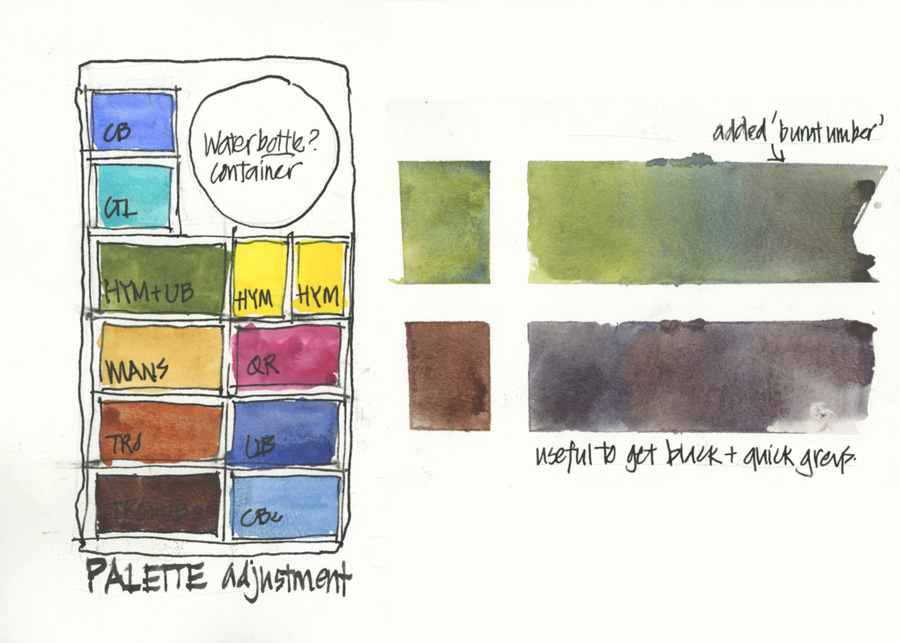 CB
Waterbottle?
container
HYM+UB
HYM
HYM
MANS
QR
TRO
UB
TRO+UB
PALETTE adjustment
added 'burnt umber'
useful to get black + quick greys.